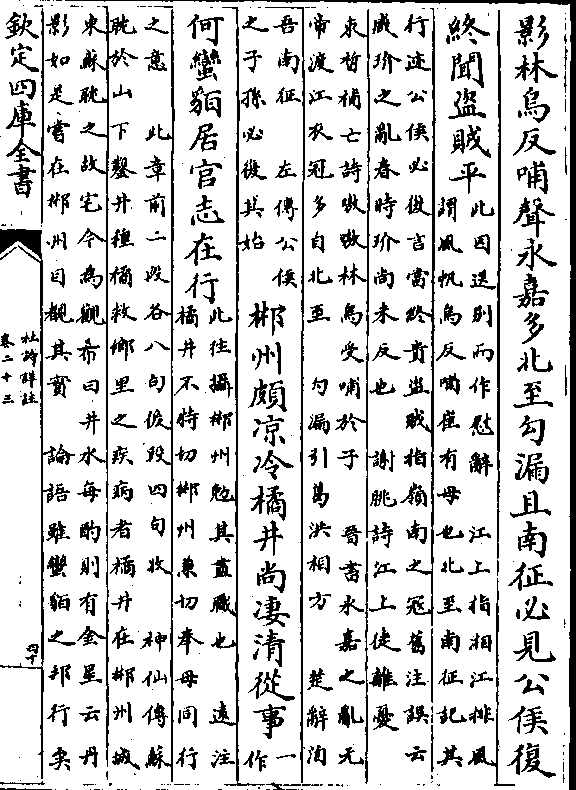 影林烏反哺聲永嘉多北至勾漏且南征必見公侯復
終聞盜賊平
此因送別而作慰辭 江上指相江排風
謂風帆烏反哺崔有母也北至南征記其
行迹公侯必復言當終貴盜賊指嶺南之寇舊注誤云
臧玠之亂春時玠尚未反也 謝朓詩江上徒離憂
束晳補亡詩嗷嗷林烏受哺於子 晉書永嘉之亂元
帝渡江衣冠多自北至 勾漏引葛洪相方 楚辭濟
吾南征 左傳公侯
之子孫必復其始
郴州頗凉冷橘井尚凄清從事
一
作
何蠻貊居官志在行
此往攝郴州勉其盡職也 遠注
橘井不特切郴州兼切奉母同行
之意 此章前二段各八句後段四句收 神仙傳蘇
耽於山下鑿井種橘救鄉里之疾病者橘井在郴州城
東蘇耽之故宅今為觀希曰井水每酌則有金星云丹
影如是嘗在郴州目覩其實 論語雖蠻貊之邦行矣
欽定四庫全書
杜詩詳註
卷二十三
四十